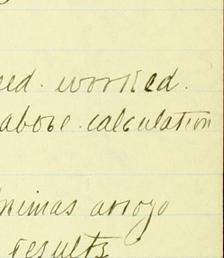 worked.
above calculation
nimas arroyo
results